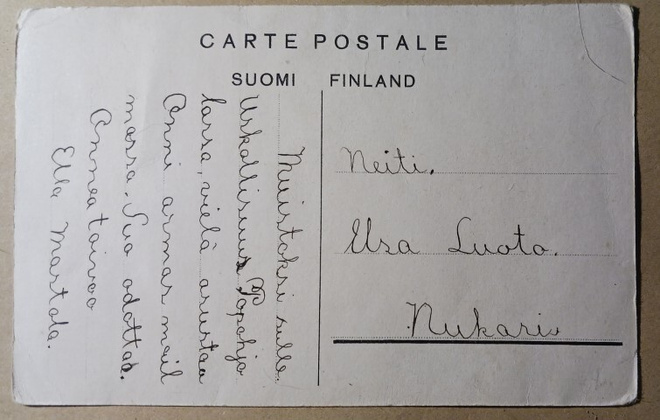 CARTE POSTALE
SUOMI FINLAND
Muistoksi sulle.
Uskollisuus Popohjo
lassa, vielä asustaa
Onni armas mail
massa. Suo odottaa.
Onnea toivoo
Ella Martola.
Neiti.
Elsa Luoto.
Nukari